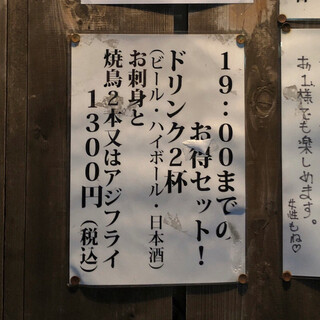 19:00までの
お得セット!
ドリンク2杯
(ビール・ハイボール・日本酒)
お刺身と
焼鳥2本又はアジフライ
1300円(税込)
お1人様でも楽しめます。
女性もね♡